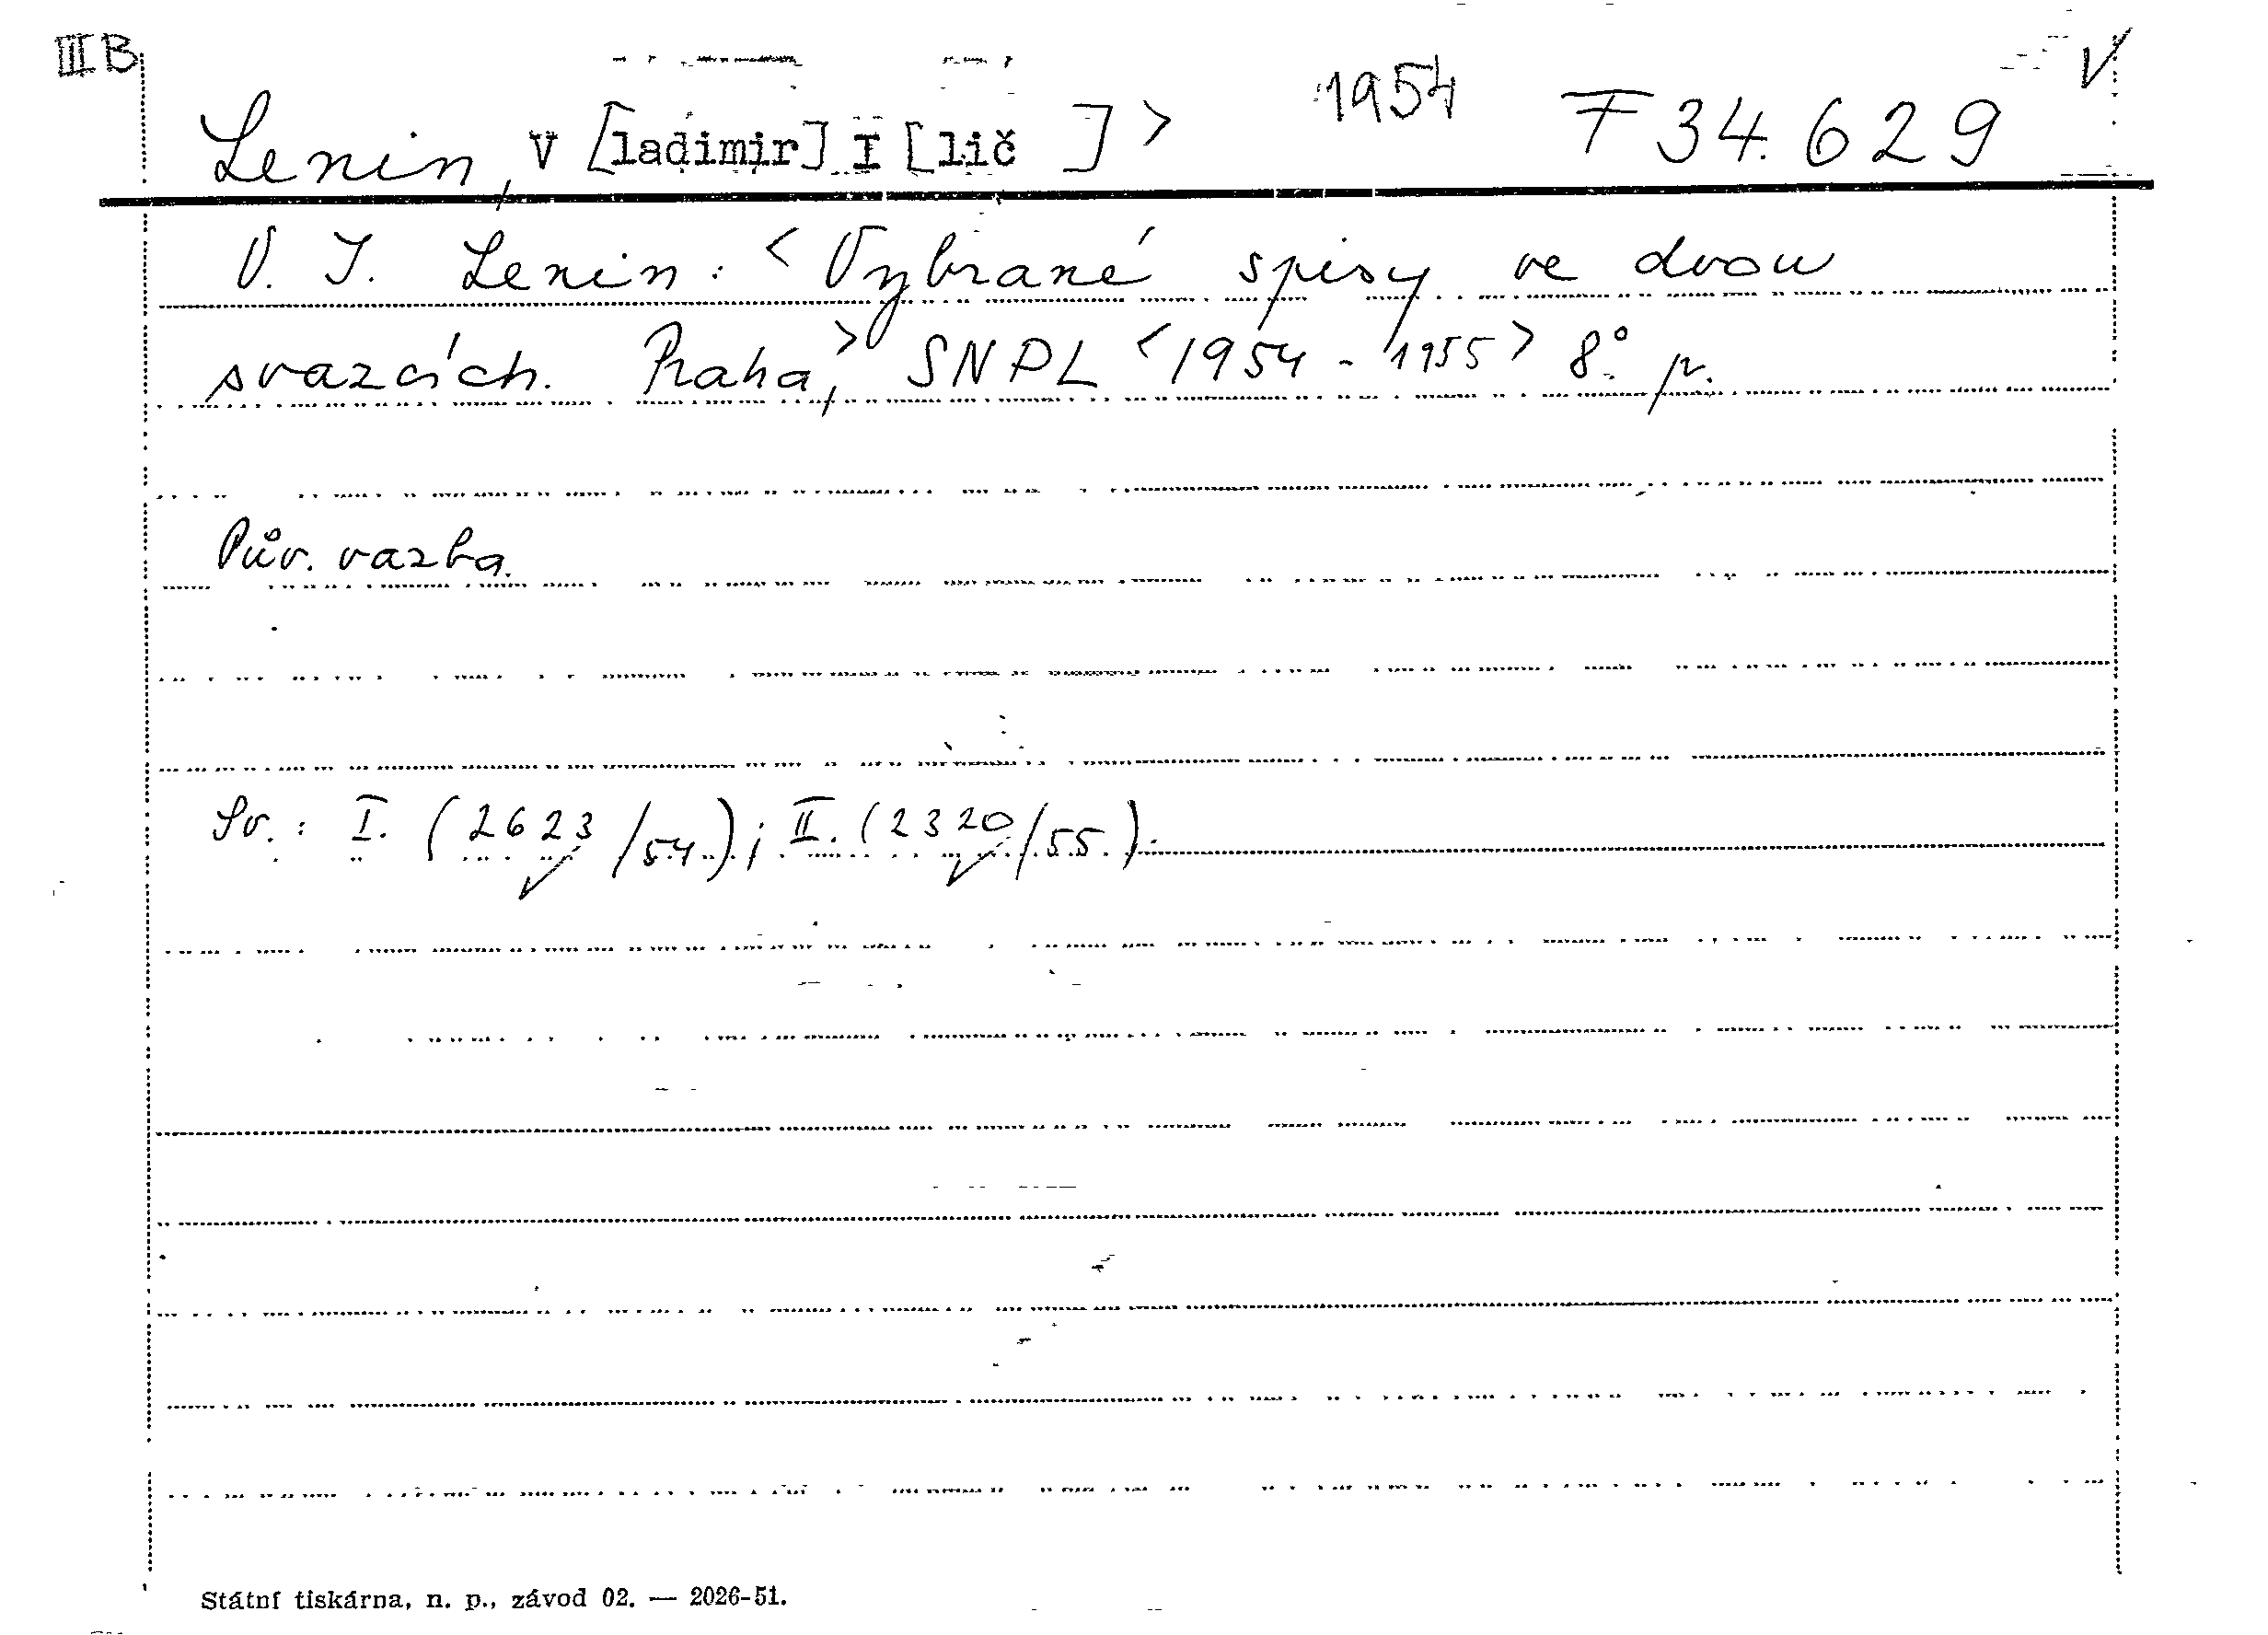 III B
Lenin, V [ladimir] I [lič ] > 1954 F 34.629 V
V. I. Lenin: < Vybrané spisy ve dvou
svazcích. Praha,> SNPL <1954 - 1955> 8° p.
Pův. vazba.
Sv.: I. (2623/54.); II. (2320/55.).
Státní tiskárna, n. p., závod 02. — 2026-51.